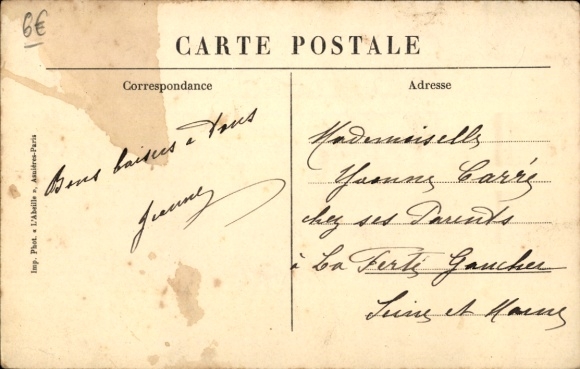 6€
CARTE POSTALE
Correspondance
Adresse
Imp. Phot. « L'Abeille », Asnières-Paris
Bons baisers à Tous
Jeanne
Mademoiselle
Yvonne Carré
chez ses Parents
à La Ferté Gaucher
Seine et Marne